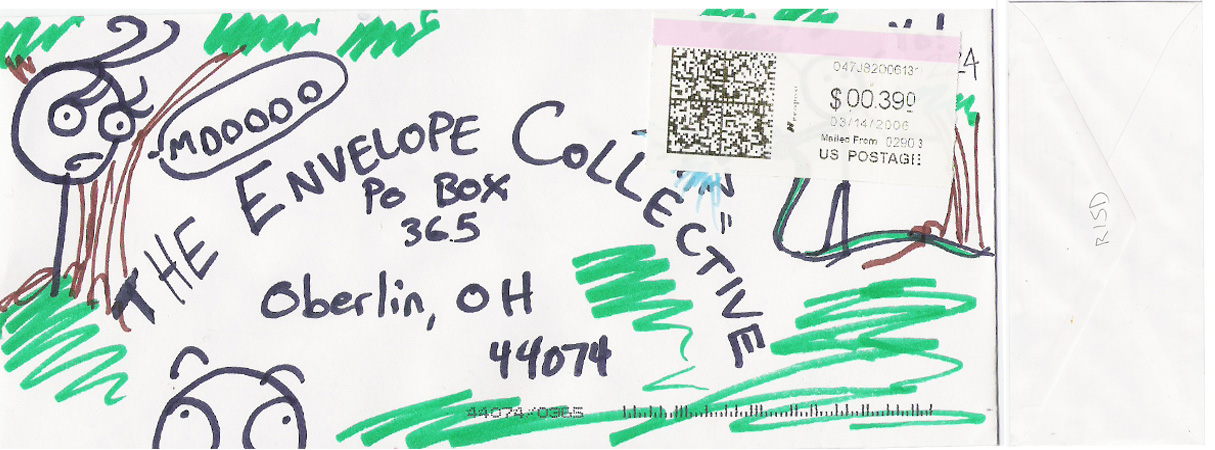 MOOOOO
THE ENVELOPE COLLECTIVE
PO BOX
365
Oberlin, OH
44074
44074/0365
047J82006131
$00.390
03/14/2006
Mailed From 02903
US POSTAGE
RISD